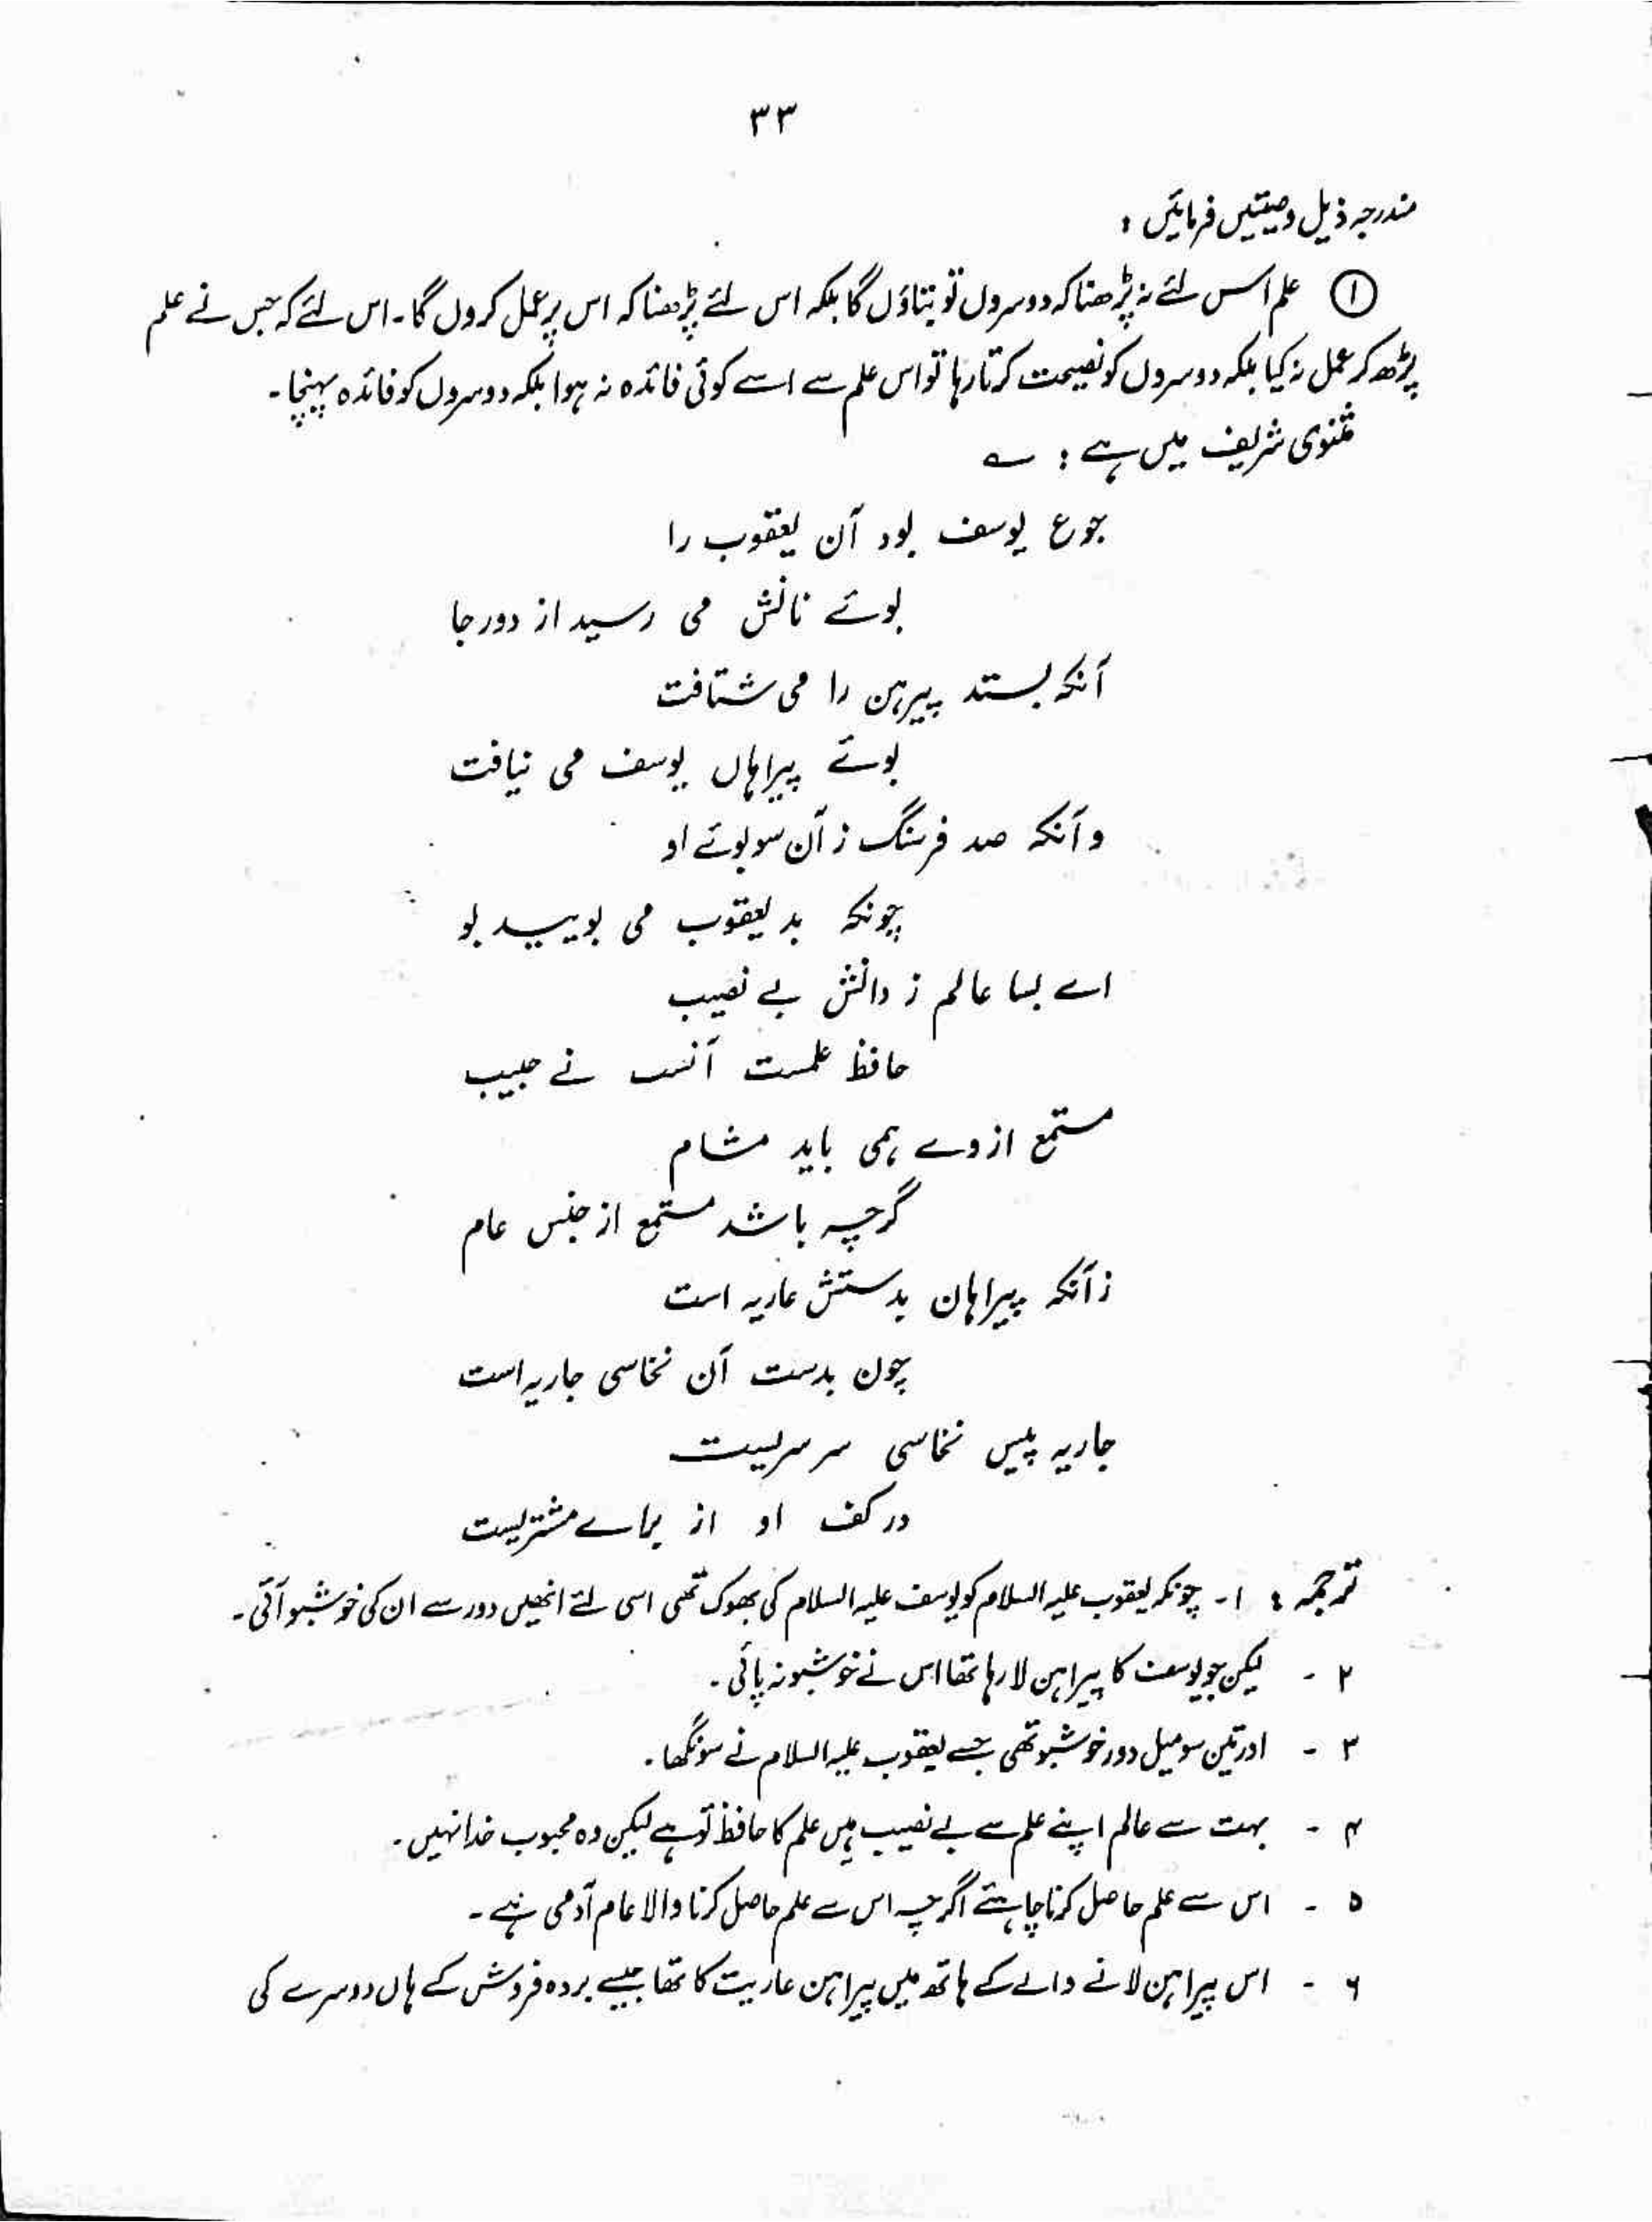 ۳۳
مندرجہ ذیل وصیتیں فرمائیں :
① علم اس لئے نہ پڑھنا کہ دوسروں تو بتاؤں گا بلکہ اس لئے پڑھنا کہ اس پر عمل کروں گا۔ اس لئے کہ جس نے علم
پڑھ کر عمل نہ کیا بلکہ دوسروں کو نصیحت کرتا رہا تو اس علم سے اسے کوئی فائدہ نہ ہوا بلکہ دوسروں کو فائدہ پہنچا۔
مثنوی شریف میں ہے : ؎
جوع یوسف بود آن یعقوب را
بوئے نانش می رسید از دور جا
آنکہ بستد پیرہن را می شتافت
بوئے پیراہاں یوسف می نیافت
و آنکہ صد فرسنگ ز آن سو بوئے او
چونکہ بد یعقوب می بویید بو
اے بسا عالم ز دانش بے نصیب
حافظ علمست آنست نے حبیب
مستمع از وے ہمی باید مشام
گرچہ باشد مستمع از جنس عام
ز آنکہ پیراہان بدستش عاریہ است
چون بدست آن نخاسی جاریہ است
جاریہ پیس نخاسی سرسریست
در کف او از براے مشتریست
ترجمہ : ۱۔ چونکہ یعقوب علیہ السلام کو یوسف علیہ السلام کی بھوک تھی اسی لئے انھیں دور سے ان کی خوشبو آئی۔
۲ - لیکن جو یوسف کا پیراہن لا رہا تھا اس نے خوشبو نہ پائی۔
۳ - اور تین سو میل دور خوشبو تھی جسے یعقوب علیہ السلام نے سونگھا۔
۴ - بہت سے عالم اپنے علم سے بے نصیب ہیں علم کا حافظ تو ہے لیکن وہ محبوب خدا نہیں۔
۵ - اس سے علم حاصل کرنا چاہئے اگرچہ اس سے علم حاصل کرنا والا عام آدمی ہے۔
۶ - اس پیراہن لانے والے کے ہاتھ میں پیراہن عاریت کا تھا جیسے بردہ فروش کے ہاں دوسرے کی